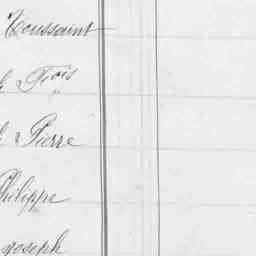 Toussaint
Frois
Pierre
Philippe
Joseph